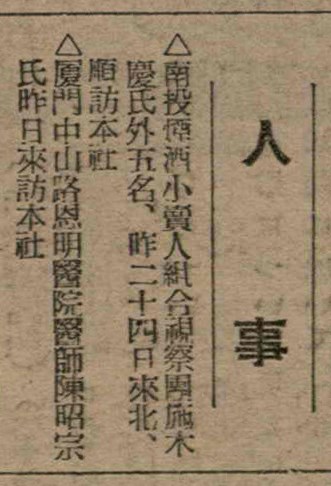 人事
△南投煙酒小賣人組合視察團施木
慶氏外五名、昨二十四日來北、
順訪本社
△厦門中山路恩明醫院醫師陳昭宗
氏昨日來訪本社